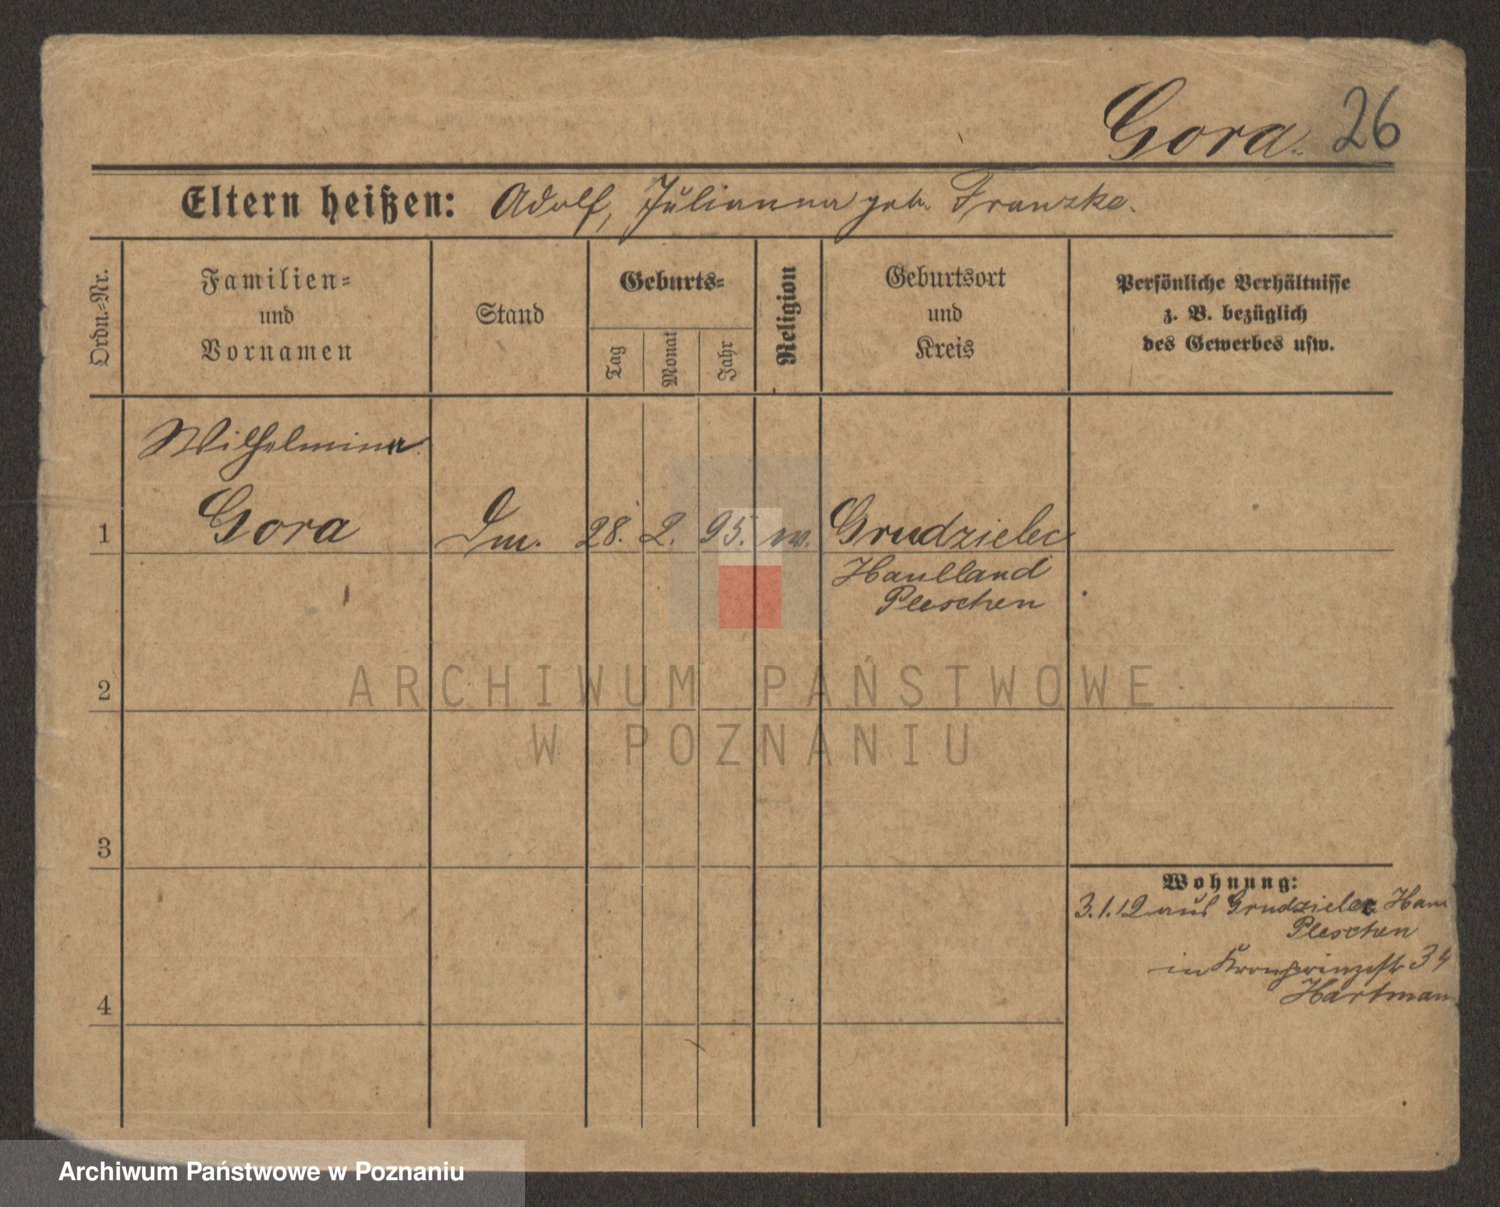 Gora. 26
Eltern heißen: Adolf, Julianna geb. Franzke.
Ordn.-Nr.
Familien-
und
Vornamen
Stand
Geburts-
Tag
Monat
Jahr
Religion
Geburtsort
und
Kreis
Persönliche Verhältnisse
z. B. bezüglich
des Gewerbes usw.
Wilhelmina
1 Gora Dm. 28. 2. 95. ev. Grudzielec
Hauland
Pleschen
2
ARCHIWUM PAŃSTWOWE
W POZNANIU
3
Wohnung:
3.1.12 aus Grudzielec Hau
Pleschen
in Kronprinzstr 34
Hartman
4
Archiwum Państwowe w Poznaniu